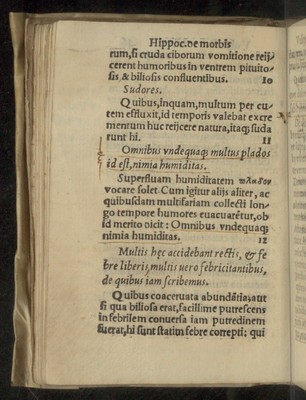 Hippoc.de morbis
rum,si cruda ciborum vomitione reij⸗
cerent humoribus in ventrem pituito⸗
sis & biliosis confluentibus. 10
Sudores.
Quibus,inquam,multum per cu⸗
tem effluxit,id temporis valebat excre
mentum huc reijcere natura,itaq; suda
runt hi. 11
Omnibus vndequaq; multus plados
id est,nimia humiditas.
Superfluam humiditatem πλαδον
vocare solet Cum igitur alijs aliter, ac
quibusdam multifariam collecti lon⸗
go tempore humores euacuarētur,ob
id merito dicit : Omnibus vndequaq;
nimia humiditas. 12
Multis hęc accidebant rectis, & fe
bre liberis,multis uero febricitantibus,
de quibus iam scribemus.
Quibus coaceruata abundātia,aut
si qua biliosa erat,facillime putrescens
in febrilem conuersa iam putredinem
fuerat,hi sunt statim febre correpti: qui